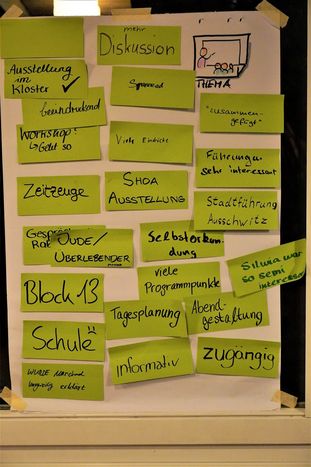 mehr
Diskussion
THEMA
Ausstellung
im
Kloster ✓
Spannend
beeindruckend
"zusammen-
gefügt"
Workshop:
↳ Gut so
Viele Eindrücke
Führungen
sehr interessant
Zeitzeuge
SHOA
AUSSTELLUNG
Stadtführung
Auschwitz
Gespräch
JUDE/
ÜBERLEBENDER
Selbsterkun-
dung
viele
Programmpunkte
Silvia war
so semi
interessa
Block 13
Tagesplanung
Abend-
gestaltung
Schule
informativ
zugängig
wurde manchmal
erklärt